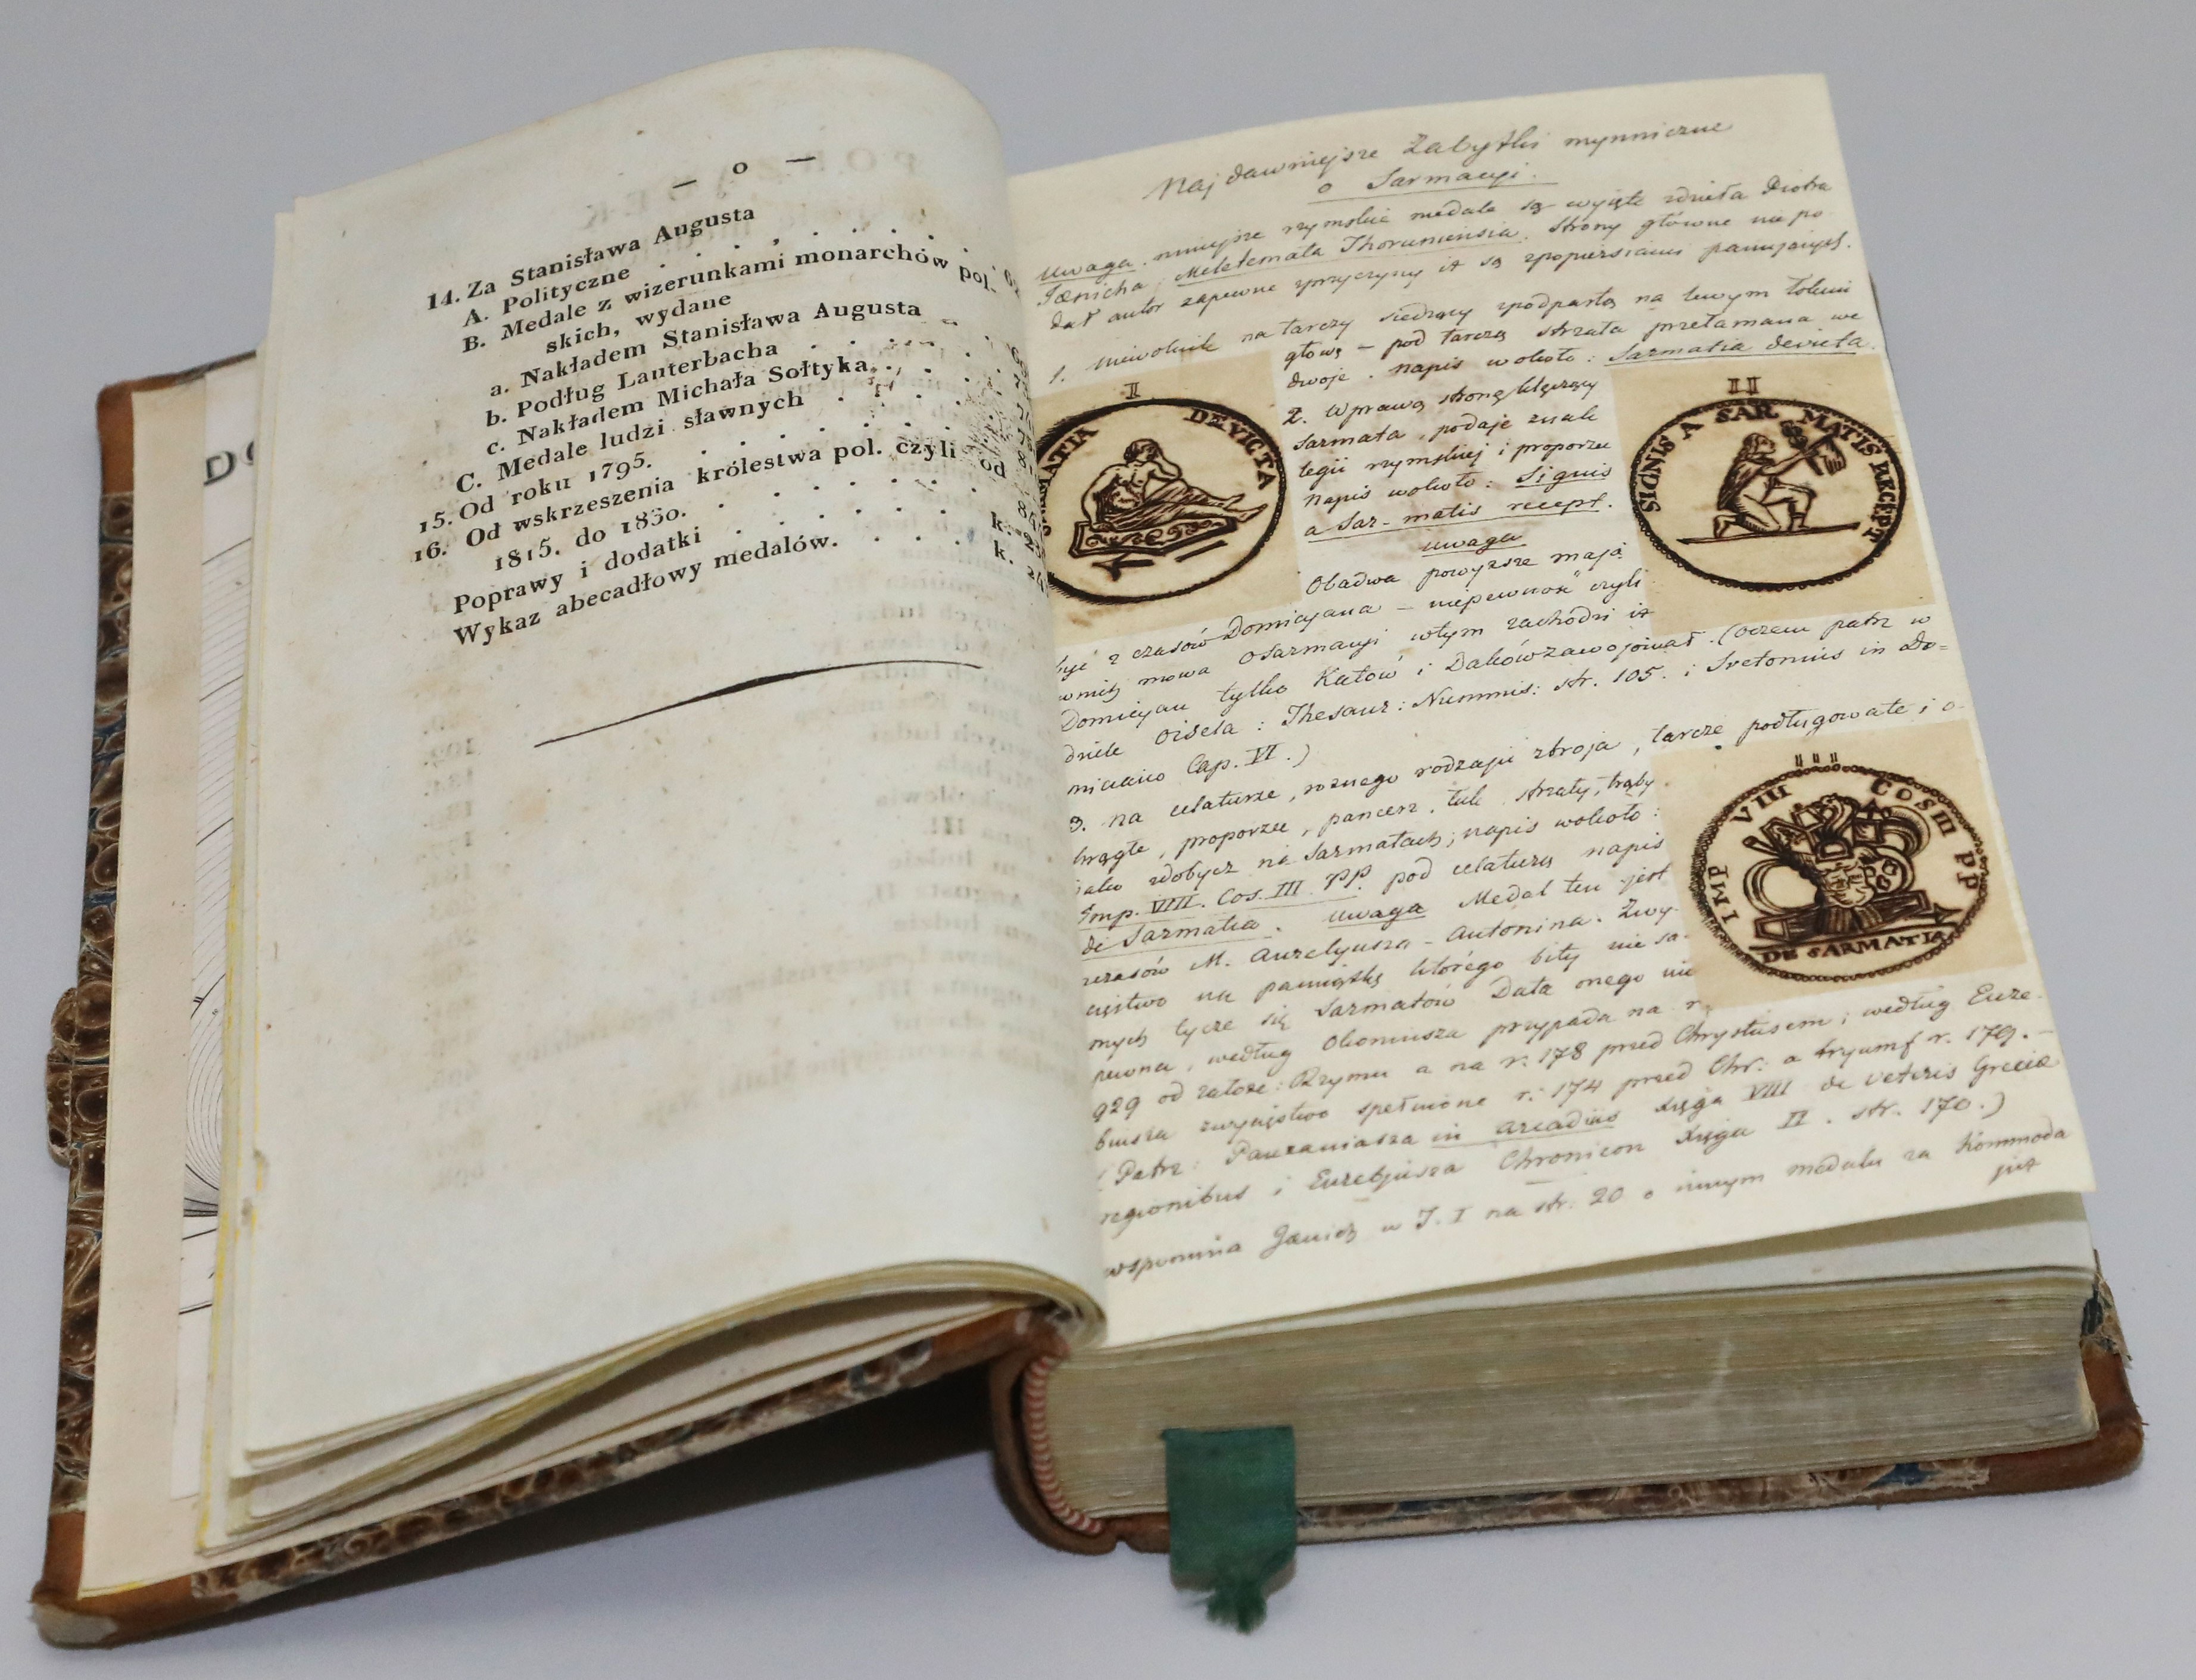 — o —
14. Za Stanisława Augusta
A. Polityczne
B. Medale z wizerunkami monarchów pol-
skich, wydane
a. Nakładem Stanisława Augusta
b. Podług Lauterbacha
c. Nakładem Michała Sołtyka
C. Medale ludzi sławnych
15. Od roku 1795.
16. Od wskrzeszenia królestwa pol. czyli od
1815. do 1830.
Poprawy i dodatki k.
Wykaz abecadłowy medalów. k.
Najdawniejsze Zabytki mynniczne
o Sarmacyi.
Uwaga. niniejsze rzymskie medale są wyjęte zdzieła Piotra
Jænicha, Meletemata Thoruniensia. Strony główne nie po
dał autor zapewne zprzyczyny iż są zpopiersiami panujących.
1. niewolnik na tarczy siedzący zpodpartą na lewym łokciu
głową – pod tarczą strzała przełamana we
dwoje. napis wokoło: Sarmatia devicta.
I
SARMATIA DEVICTA
2. Wprawą stronę klęczący
Sarmata, podaje znak
legii rzymskiej i proporzec
napis wokoło: Signis
a Sar-matis recept.
II
SIGNIS A SAR MATIS RECEPT
uwaga
Obadwa powyższe mają
być z czasów Domicyana – niepewność czyli
wnich mowa o Sarmacyi wtym zachodzi iż
Domicyan tylko Katów i Daków zawojował. (oczem patrz w
dziele Oisela: Thesaur: Nummis: str. 105. i Svetonius in Do=
miciano Cap. VI.)
3. na celaturze, roznego rodzaju zbroja, tarcze podługowate i o-
krągłe, proporzec, pancerz, tuk, strzały, trąby
jako zdobycz na Sarmatach; napis wokoło:
Imp. VIII. Cos. III PP. pod celaturą napis
de Sarmatia. uwaga Medal ten jest
zczasów M. Aurelyusza – Antonina. Zwy-
cięstwo na pamiątkę którego bity nie sa-
mych tycze się Sarmatów Data onego nie
pewna, według Okoniusza przypada na r.
III
IMP VIII COS III PP
DE SARMATIA
929 od założe: Rzymu a na r. 178 przed Chrystusem; według Euze-
biusza zwycięstwo spełnione r: 174 przed Chr: a tryumf r. 179. –
(Patrz: Pauzaniasza in Arcadiis Księga VIII de veteris Greciæ
regionibus i Euzebjusza Chronicon Księga II. str. 170.)
wspomina Janich w T. I na str. 20 o innym medalu za Kommoda
już